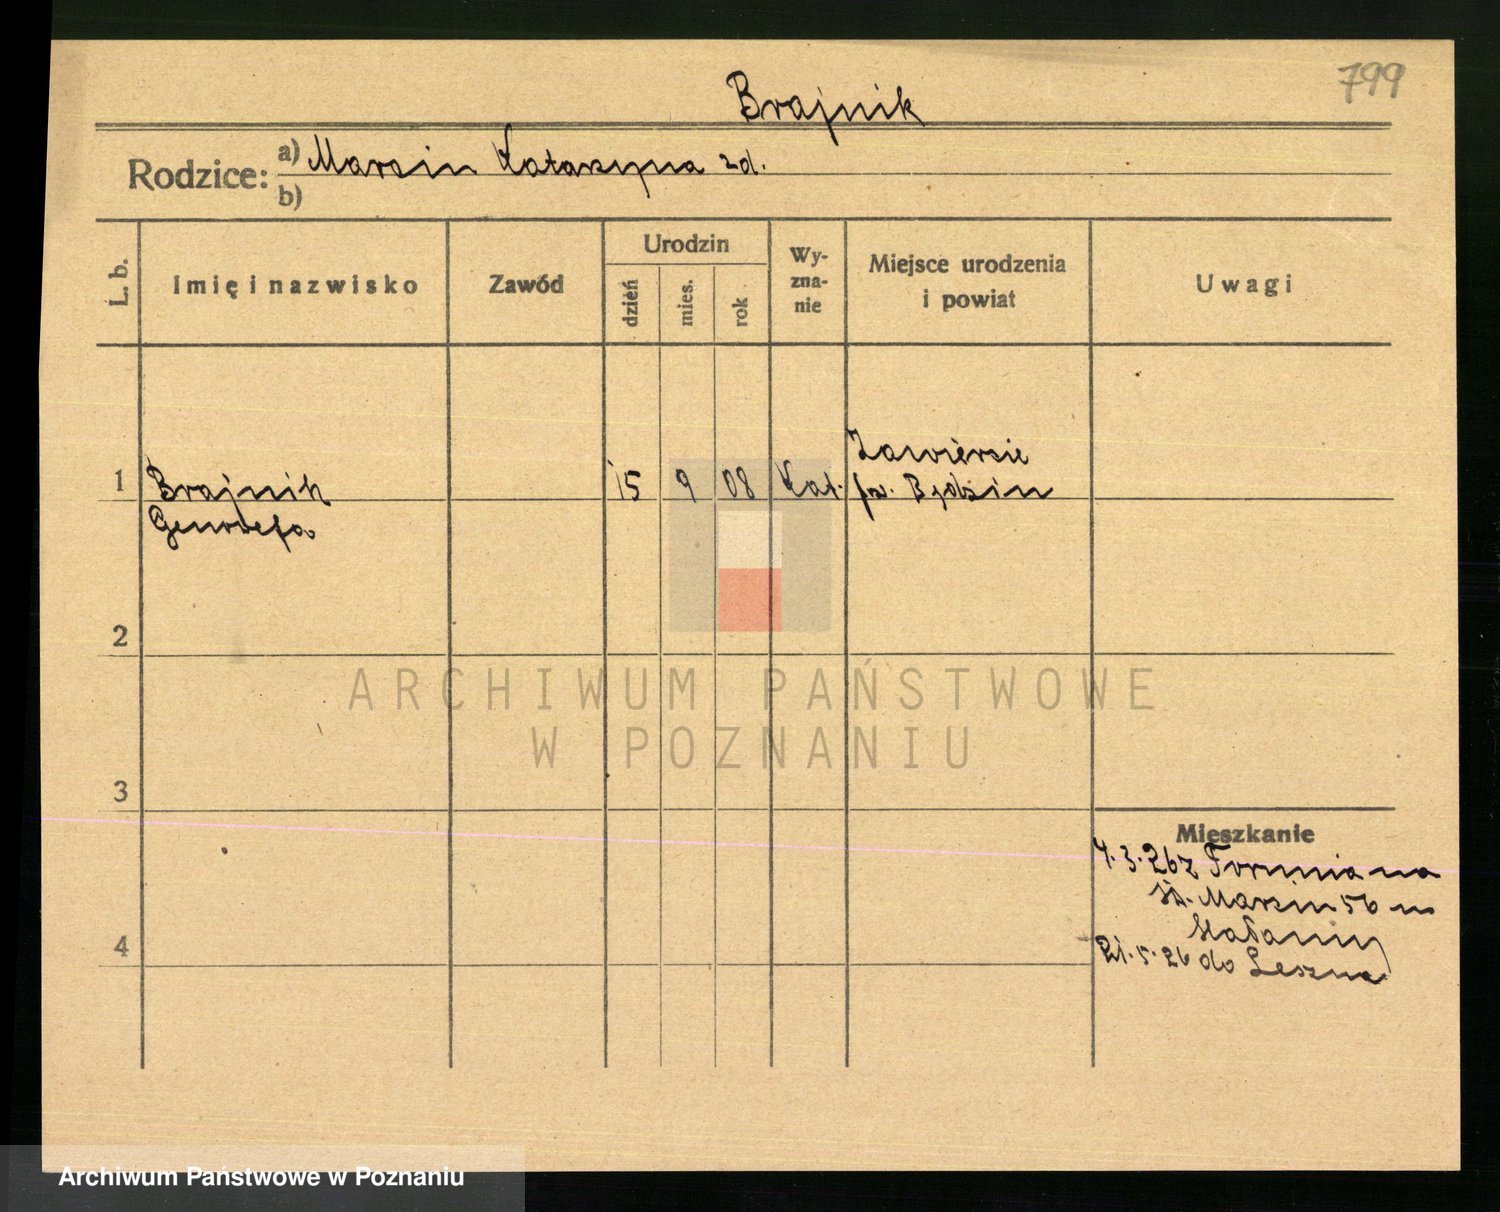 799
Brajnik
Rodzice: a) Marcin Katarzyna zd.
b)
L. b.
Imię i nazwisko
Zawód
Urodzin
dzień
mies.
rok
Wy-
zna-
nie
Miejsce urodzenia
i powiat
Uwagi
1
Brajnik
Genowefa
15
9
08
Kat.
Zawiercie
pw. Będzin
2
ARCHIWUM PAŃSTWOWE
W POZNANIU
3
Mieszkanie
4.3.26 z Torunia na
Św. Marcin 56 m
21.5.26 do Leszna
4
Archiwum Państwowe w Poznaniu